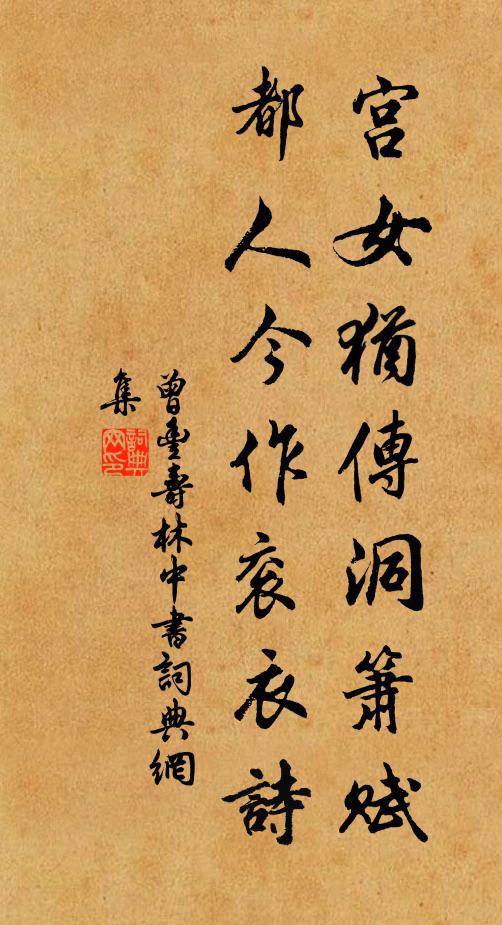 宮女猶傳洞簫賦
都人今作衮衣詩
曾豐壽林中書詞典網
集
詞典
网印